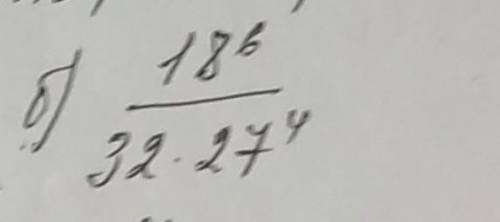 б) 18⁶
32 · 27⁴